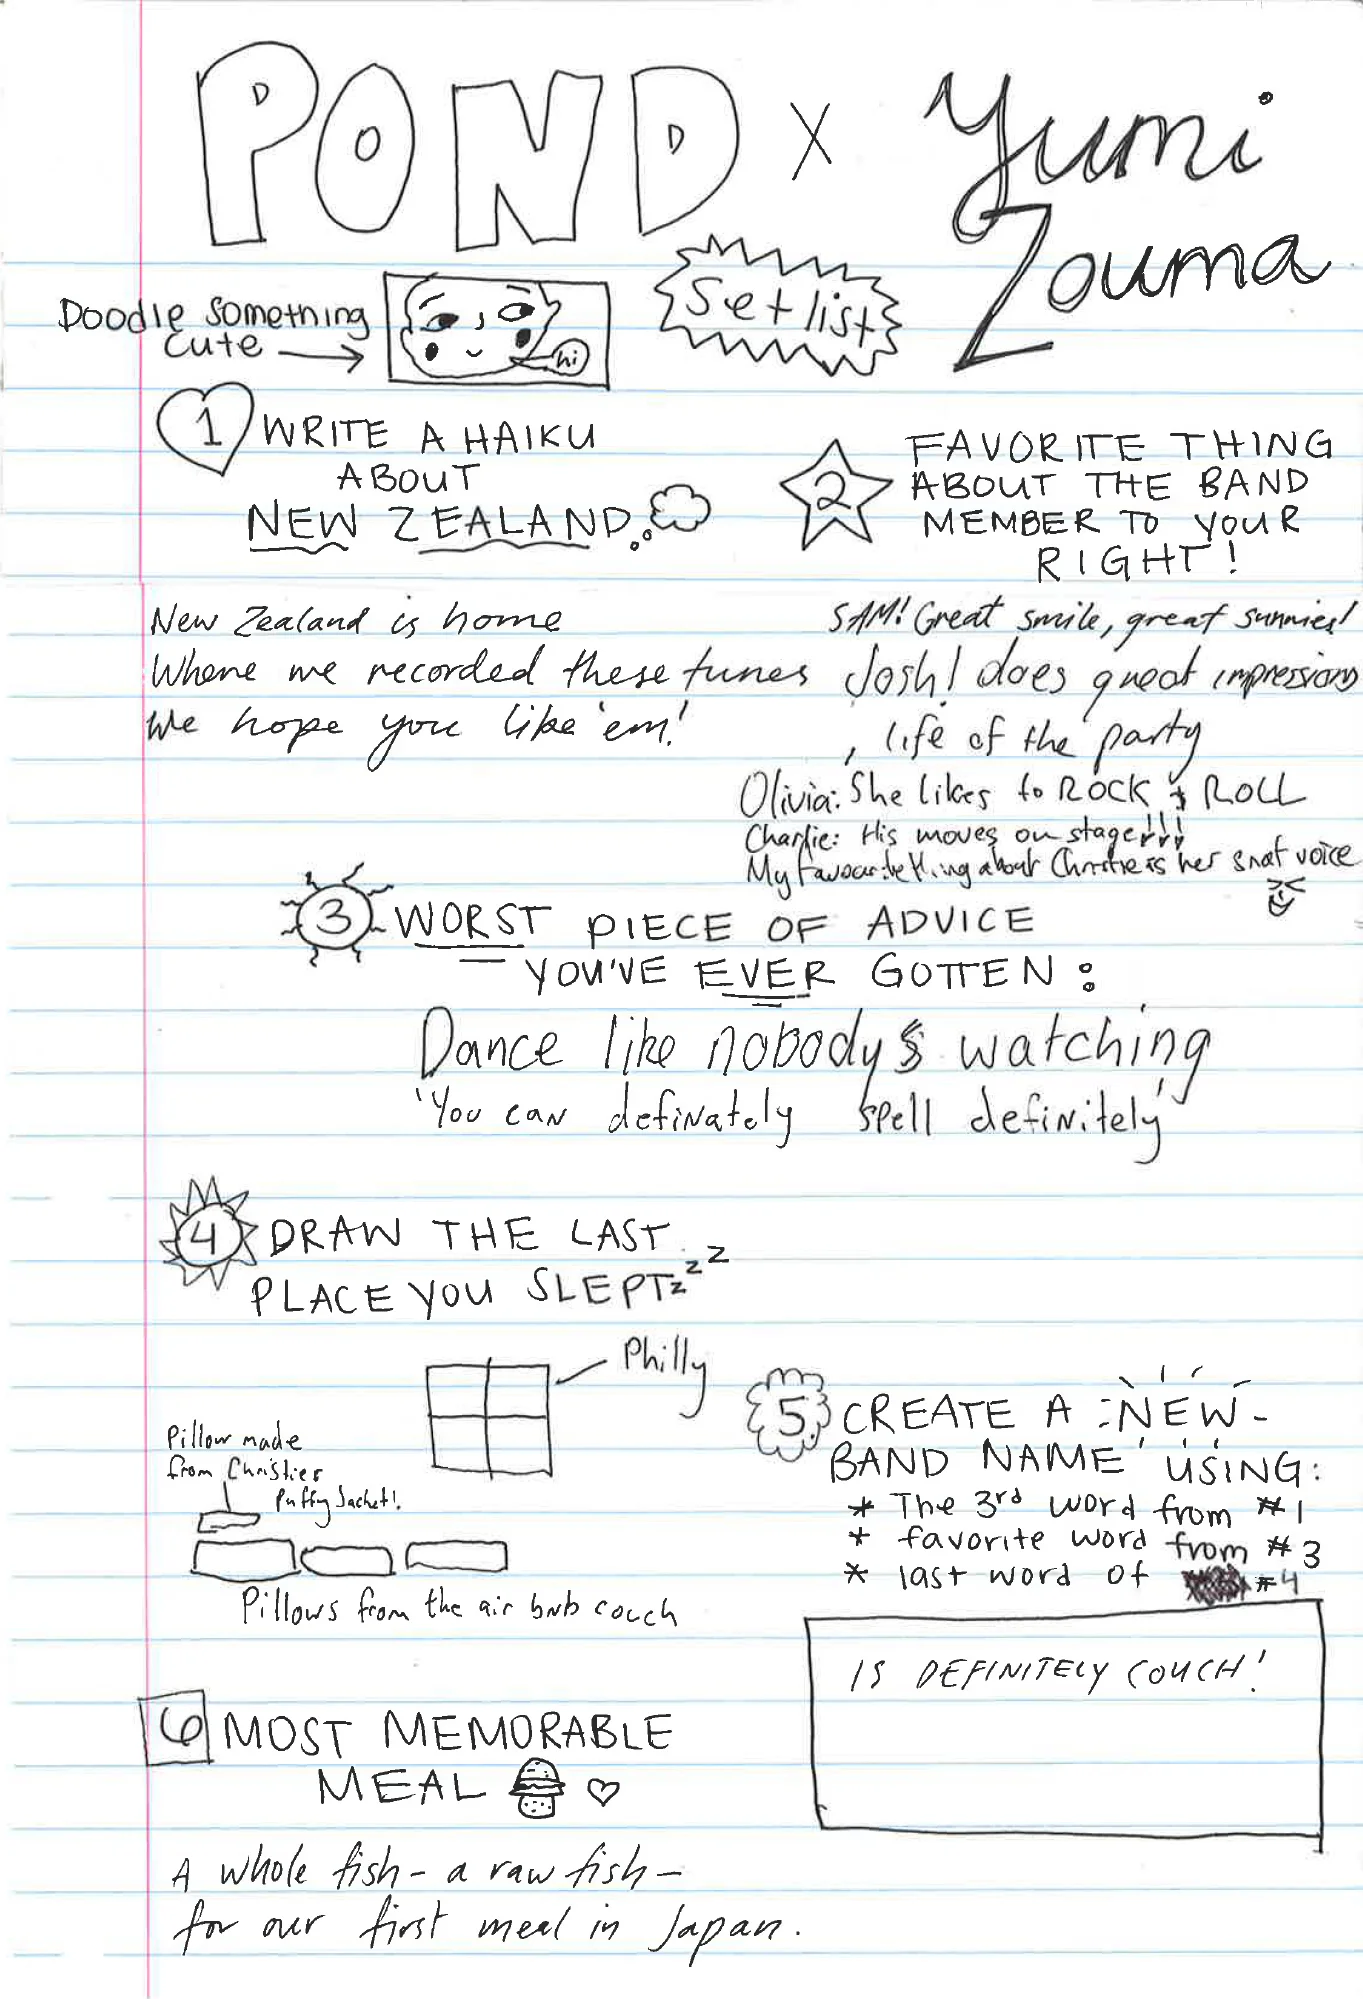 POND X Yumi
Zouma
Set list
Doodle something
cute
hi
1 WRITE A HAIKU
ABOUT
NEW ZEALAND
New Zealand is home
Where we recorded these tunes
We hope you like 'em!
2 FAVORITE THING
ABOUT THE BAND
MEMBER TO YOUR
RIGHT!
SAM! Great smile, great sunnies!
Josh! does great impressions
, life of the party
Olivia: She likes to ROCK & ROLL
Charlie: His moves on stage!!!
My favourite thing about Christie is her voice
3 WORST PIECE OF ADVICE
YOU'VE EVER GOTTEN:
Dance like nobodys watching
'You can definately spell definitely'
4 DRAW THE LAST
PLACE YOU SLEPT zzz
Philly
Pillow made
from Christies
Puffy Jacket!
Pillows from the air bnb couch
5. CREATE A NEW
BAND NAME USING:
* The 3rd word from #1
* favorite word from #3
* last word of #4
IS DEFINITELY COUCH!
6 MOST MEMORABLE
MEAL
A whole fish - a raw fish -
for our first meal in Japan.